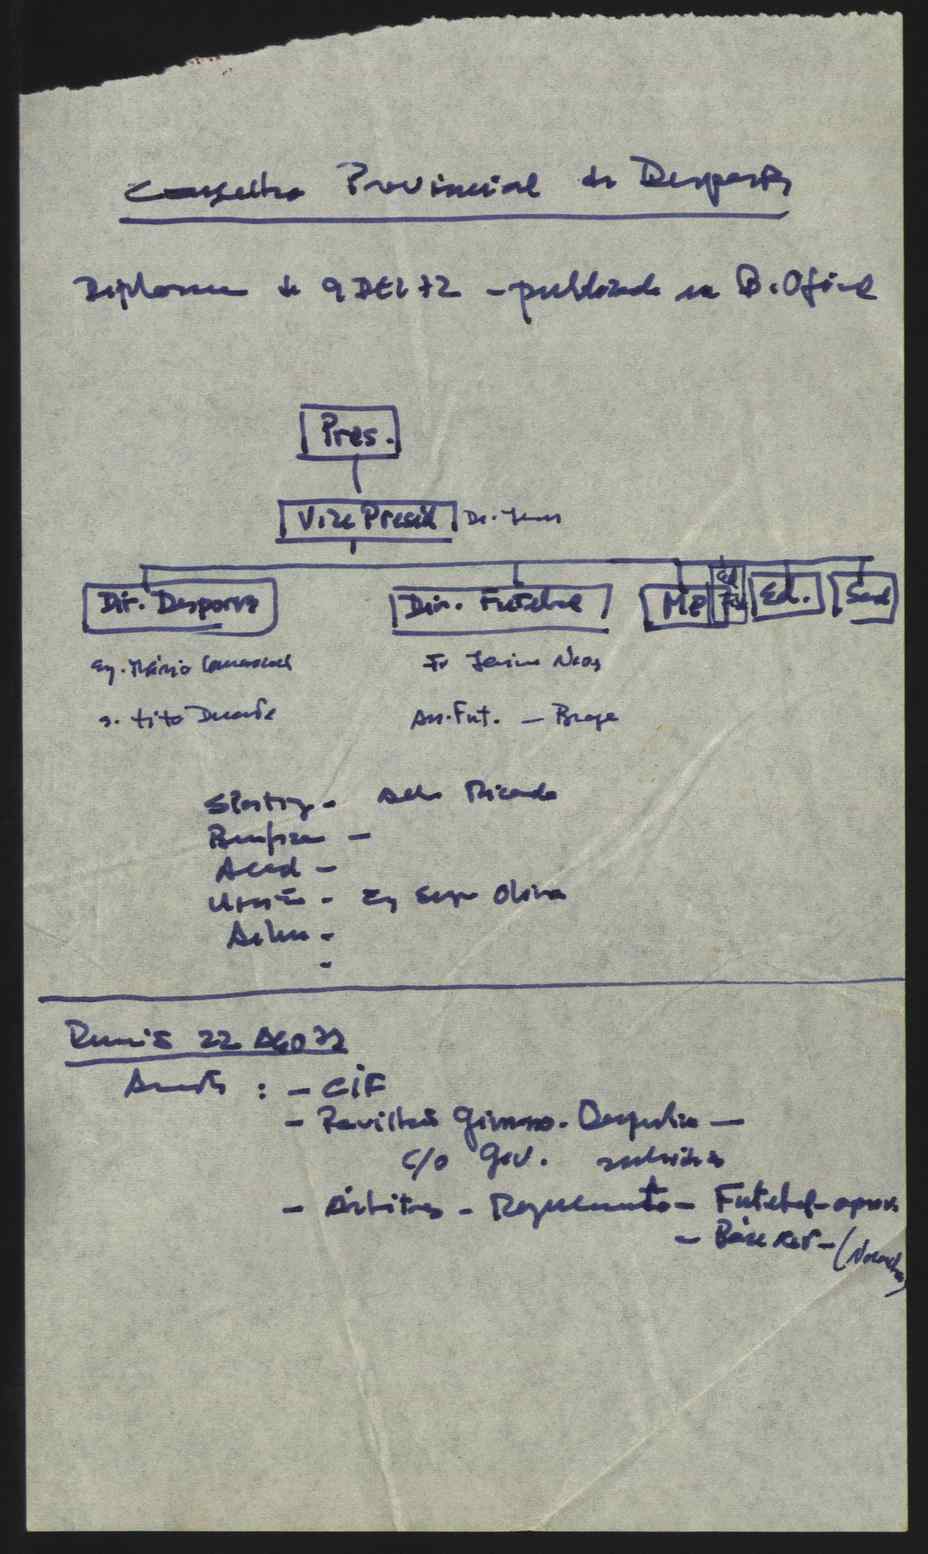 Conselho Provincial de Desportos
Diploma de 9 DEZ 72 - publicado no B. Oficial
Pres.
Vice Presid Dr.
Dir. Desporos Dir. Futebol MP Ed Fís Ed. Saud
Eng. Mário
s. Tito Duarte Ass. Fut. - Braga
Sporting - Ricardo
Benfica -
Acad -
União - Eng Oliva
-
-
Reunião 22 AGO 72
: - CIF
- Pavilhão Gimno-Desportivo -
c/o Gov. subsídio
- Árbitros - Regulamento - Futebol - aprov
- Básket -